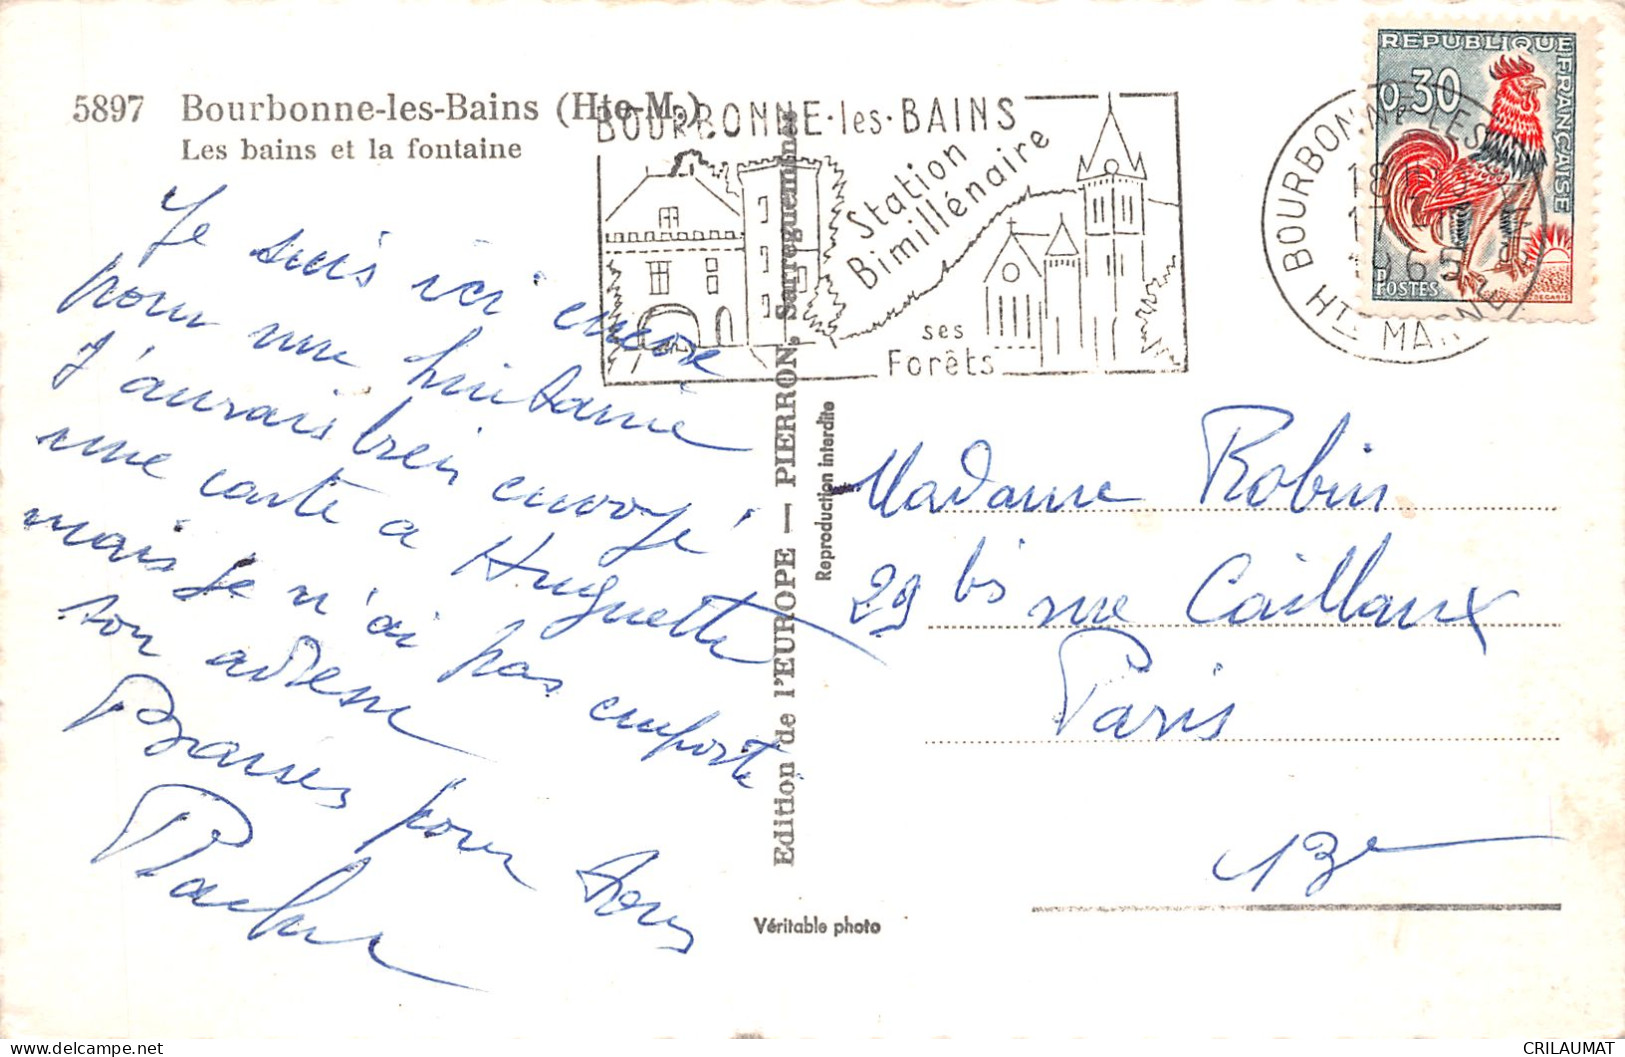 5897 Bourbonne-les-Bains (Hte-M.)
Les bains et la fontaine
Je suis ici encore
pour une huitaine
J'aurais bien envoyé
une carte a Huguette
mais je n'ai pas emporté
son adresse
Baisers pour tous
BOURBONNE·les·BAINS
Station
Bimillénaire
ses
Forêts
BOURBONNE LES BAINS
18H
17
1965
HTE MARNE
REPUBLIQUE FRANÇAISE
0,30
POSTES
DECARIS
Edition de l'EUROPE — PIERRON, Sarreguemines
Reproduction interdite
Véritable photo
Madame Robin
29 bis rue Caillaux
Paris
13e
delcampe.net
CRILAUMAT